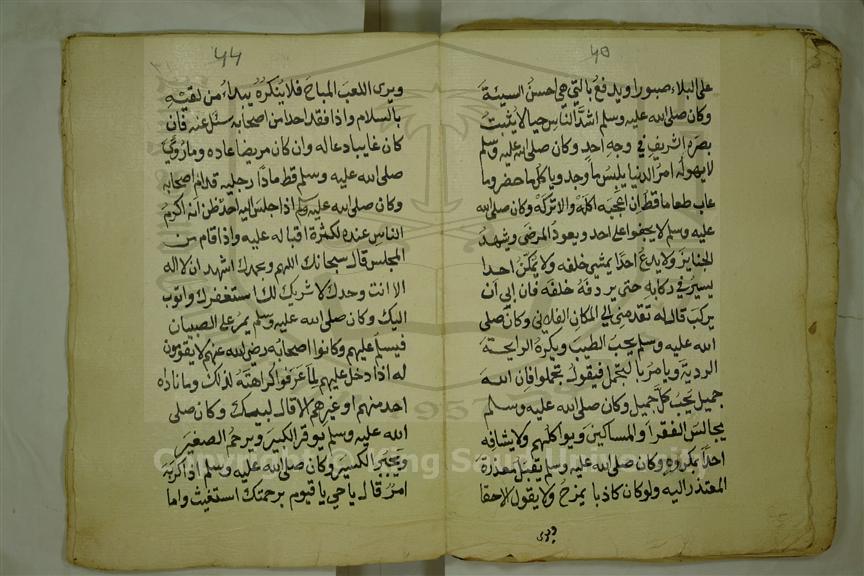 ٤٥
على البلاء صبورا ويدفع بالتي هي احسن السيئة
وكان صلى الله عليه وسلم اشد الناس حيا لا يثبت
بصره الشريف في وجه احد وكان صلى الله عليه وسلم
لا يهوله امر الدنيا يلبس ما وجد وياكل ما حضر وما
عاب طعاما قط ان اعجبه اكله والا تركه وكان صلى الله
عليه وسلم لا يجفوا على احد ويعود المرضى ويشهد
الجنايز ولا يدع احدا يمشي خلفه ولا يمكن احدا
يسير في ركابه حتى يردفه خلفه فان ابى ان
يركب قال له تقدمني الى المكان الفلاني وكان صلى
الله عليه وسلم يحب الطيب ويكره الرايحة
الردية ويامر بالتجمل فيقول تجملوا فان الله
جميل يحب كل جميل وكان صلى الله عليه وسلم
يجالس الفقرا والمساكين ويواكلهم ولا يشافه
احدا بمكروه وكان صلى الله عليه وسلم يقبل معذرة
المعتذر اليه ولو كان كاذبا يمزح ولا يقول الا حقا
ويرى
٤٤
ويرى اللعب المباح فلا ينكره يبدا من لقيه
بالسلام واذا فقد احدا من اصحابه سئل عنه فان
كان غايبا دعا له وان كان مريضا عاده وما روئي
صلى الله عليه وسلم قط مادا رجليه قدام اصحابه
وكان صلى الله عليه وسلم اذا جلس اليه احد ظن انه اكرم
الناس عنده لكثرة اقباله عليه واذا قام من
المجلس قال سبحانك اللهم وبحمدك اشهد ان لا اله
الا انت وحدك لا شريك لك استغفرك واتوب
اليك وكان صلى الله عليه وسلم يمر على الصبيان
فيسلم عليهم وكانوا اصحابه رضي الله عنهم لا يقومون
له اذا دخل عليهم لما عرفوا كراهته لذلك وما ناداه
احد منهم او غيرهم الا قال لبيك وكان صلى
الله عليه وسلم يوقر الكبير ويرحم الصغير
ويجبر الكسير وكان صلى الله عليه وسلم اذا كربه
امر قال يا حي يا قيوم برحمتك استغيث واما
Copyright © King Saud University
1957